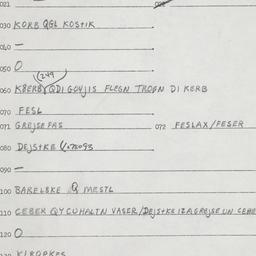 021
030 KORB QGL KOSTIK
040 —
050 O
(249
060 QDI GOVJIS FLEGN TROGN DI KERB
070 FESL
071 GREJSE FAS 072 FESLAX/FESER
080 DEJSTKE
090 —
100 BARELSKE Q MESTL
110 GEBER QYCUHALTN VASER/DEJSTKE IZ A GREJSE UN GEHE
120 O